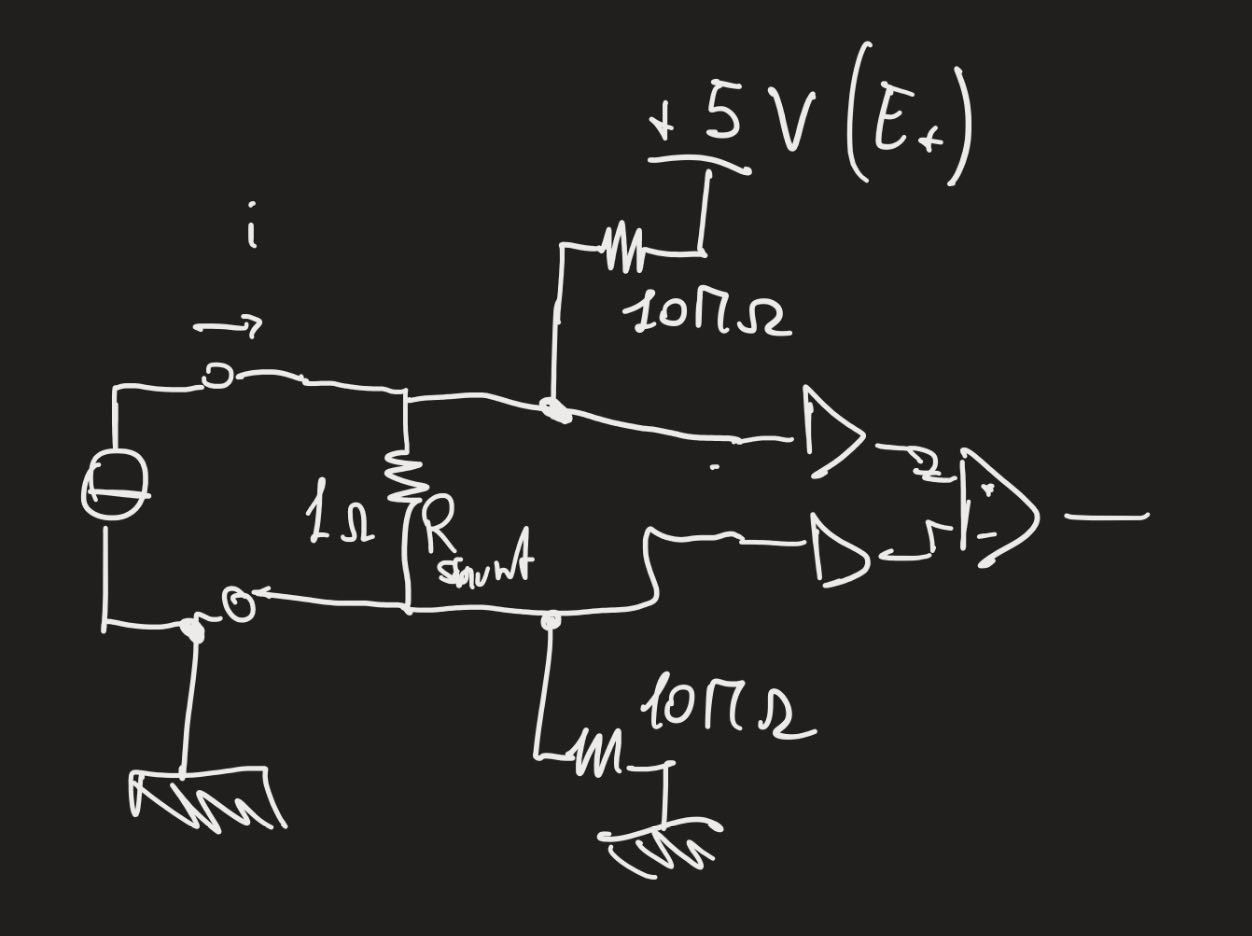 + 5 V (E+)
i
10MΩ
1Ω
R shunt
+
-
10MΩ